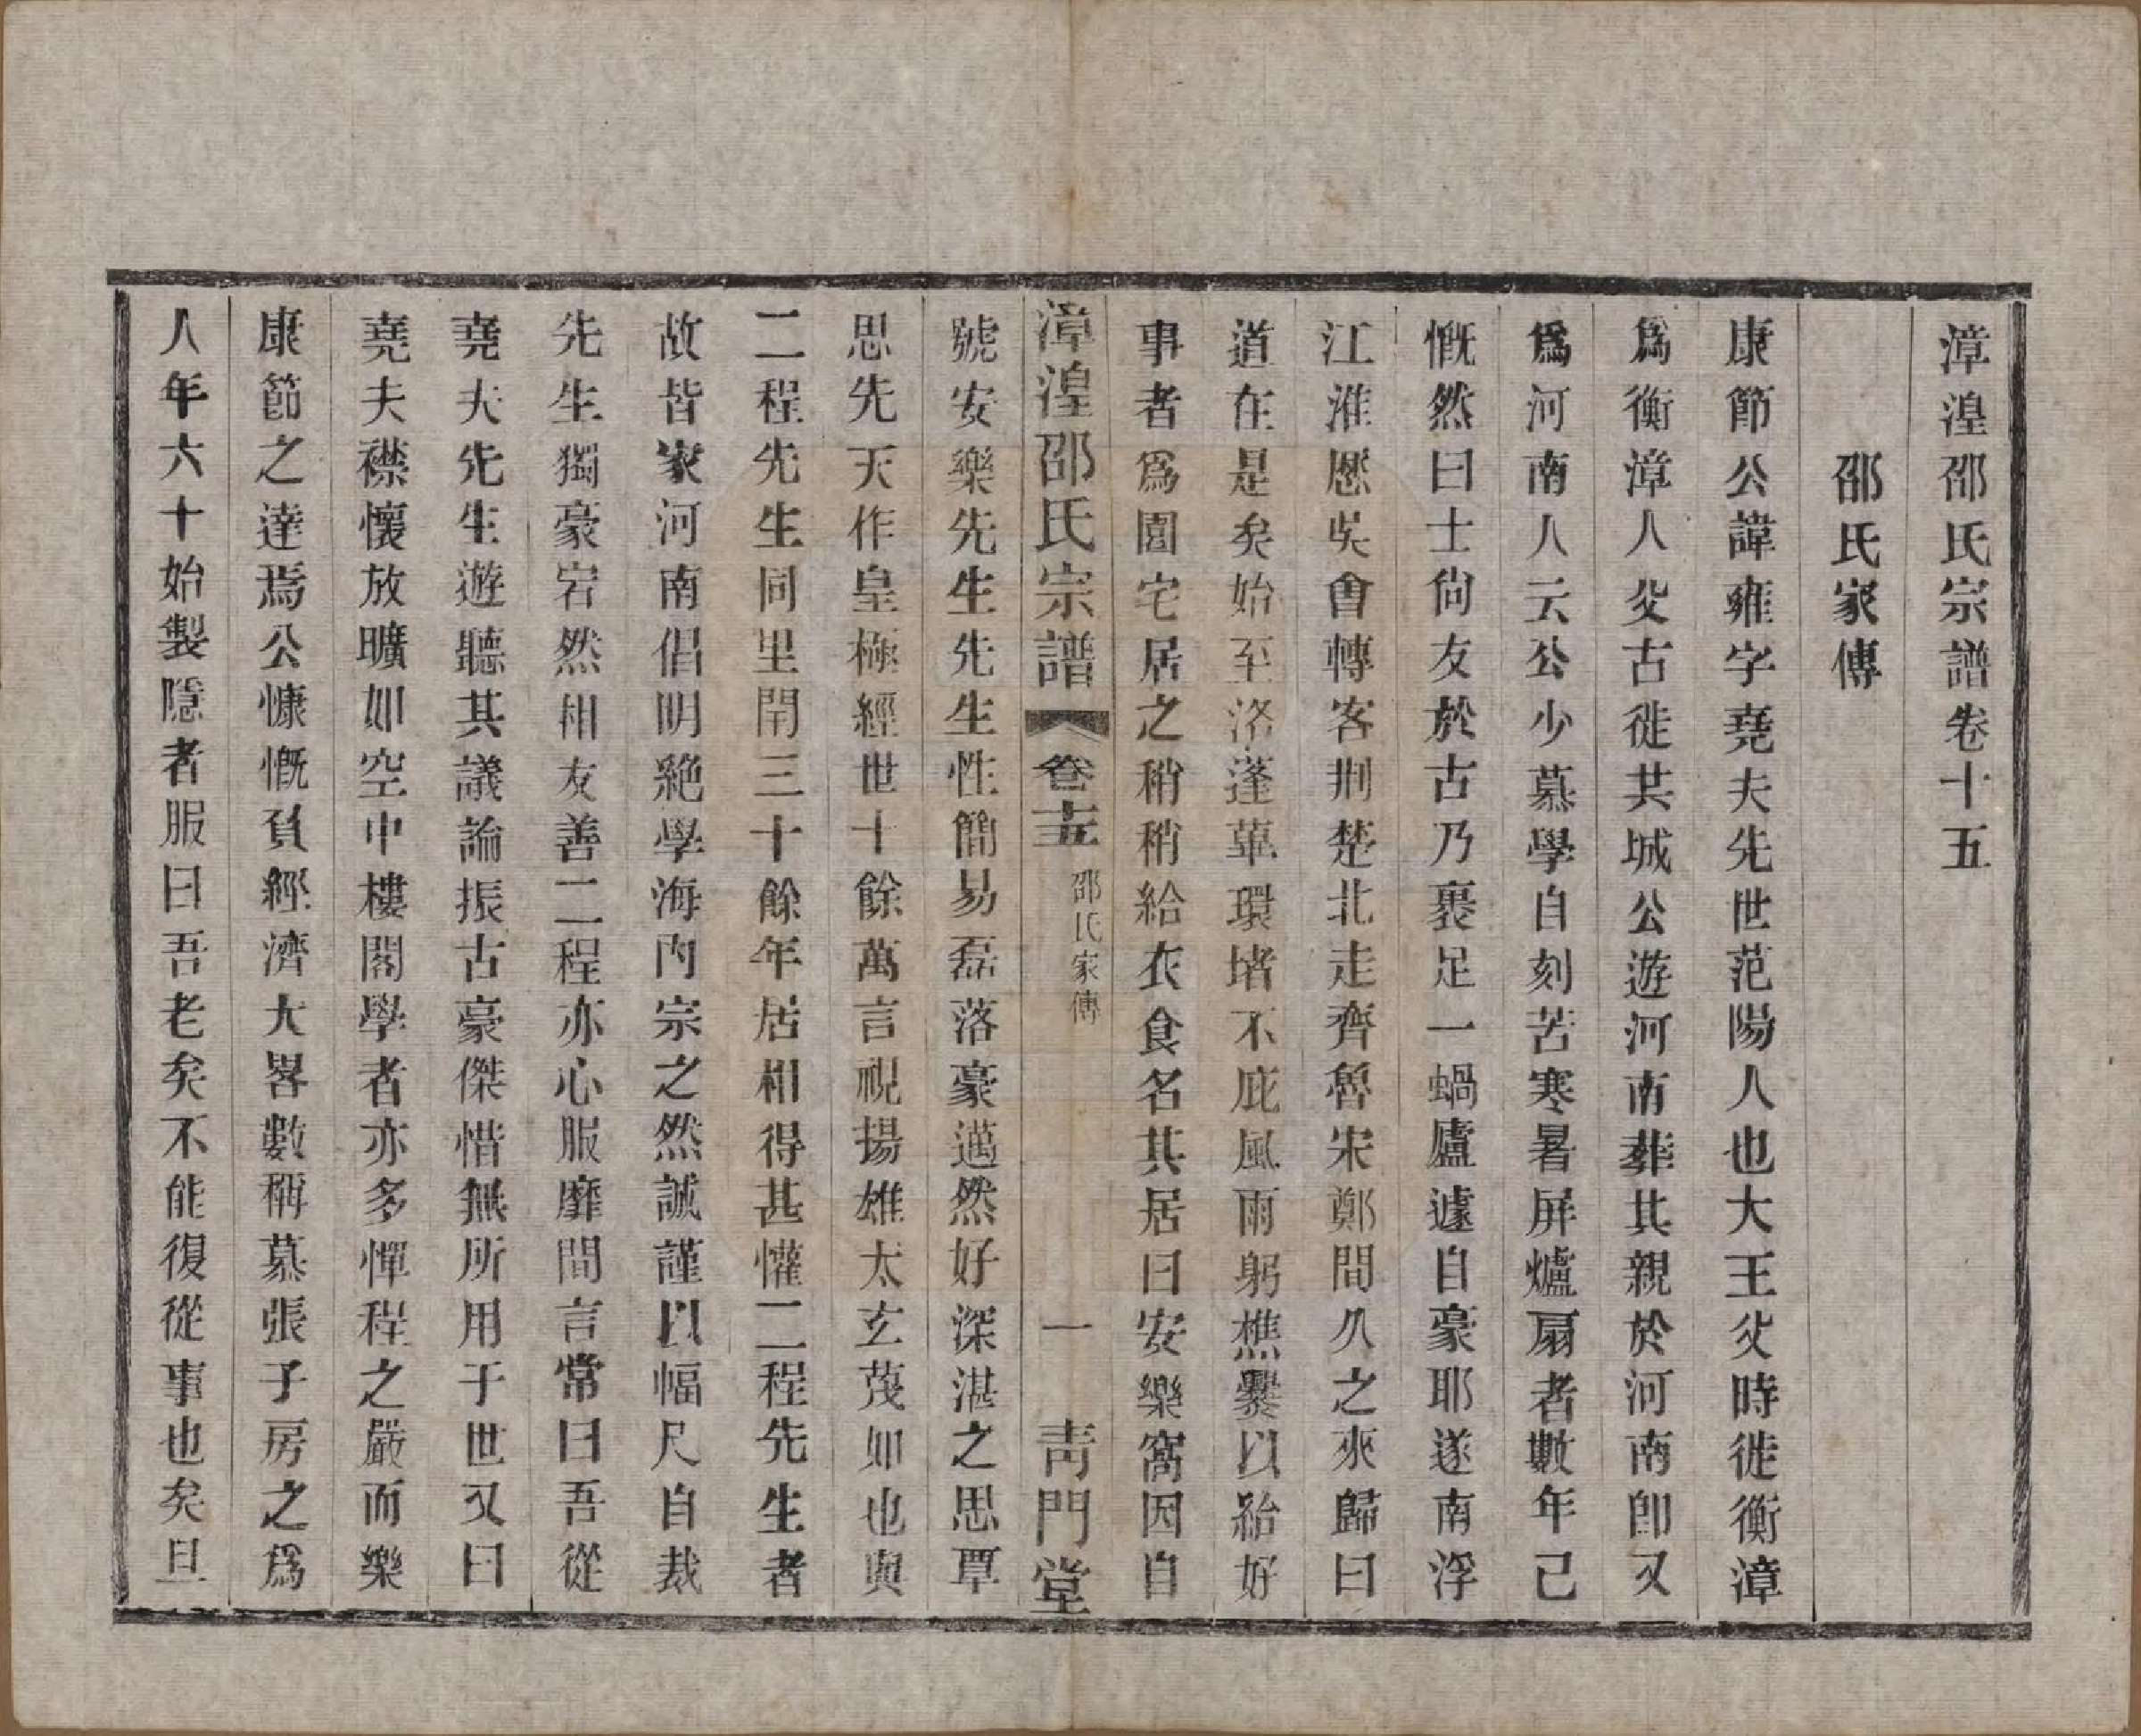 漳湟邵氏宗譜卷十五
邵氏家傳
康節公諱雍字堯夫先世范陽人也大王父時徙衡漳
爲衡漳人父古徙共城公遊河南葬其親於河南卽又
爲河南人云公少慕學自刻苦寒暑屏爐扇者數年已
慨然曰士尙友於古乃裹足一蝸廬遽自豪耶遂南浮
江淮歷吳會轉客荆楚北走齊魯宋鄭間久之來歸曰
道在是矣始至洛蓬蓽環堵不庇風雨躬樵爨以給好
事者爲園宅居之稍稍給衣食名其居曰安樂窩因自
漳湟邵氏宗譜 卷十五 邵氏家傳 一 靑門堂
號安樂先生先生性簡易磊落豪邁然好深湛之思覃
思先天作皇極經世十餘萬言視揚雄太玄蔑如也與
二程先生同里閈三十餘年居相得甚懽二程先生者
故皆家河南倡明絕學海內宗之然誠謹以幅尺自裁
先生獨豪宕然相友善二程亦心服靡間言常曰吾從
堯夫先生遊聽其議論振古豪傑惜無所用于世又曰
堯夫襟懷放曠如空中樓閣學者亦多憚程之嚴而樂
康節之達焉公慷慨負經濟大畧數稱慕張子房之爲
人年六十始製隱者服曰吾老矣不能復從事也矣旦